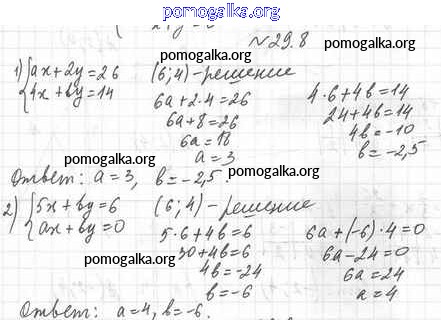 pomogalka.org
№29.8
pomogalka.org
pomogalka.org
1) {ax+2y=26 (6;4)-решение
{4x+by=14
6a+2·4=26
6a+8=26
6a=18
a=3
4·6+4b=14
24+4b=14
4b=-10
b=-2,5
pomogalka.org
Ответ: a=3, b=-2,5.
pomogalka.org
2) {5x+by=6 (6;4)-решение
{ax+by=0
5·6+4b=6
30+4b=6
4b=-24
b=-6
6a+(-6)·4=0
6a-24=0
6a=24
a=4
pomogalka.org
pomogalka.org
Ответ: a=4, b=-6.